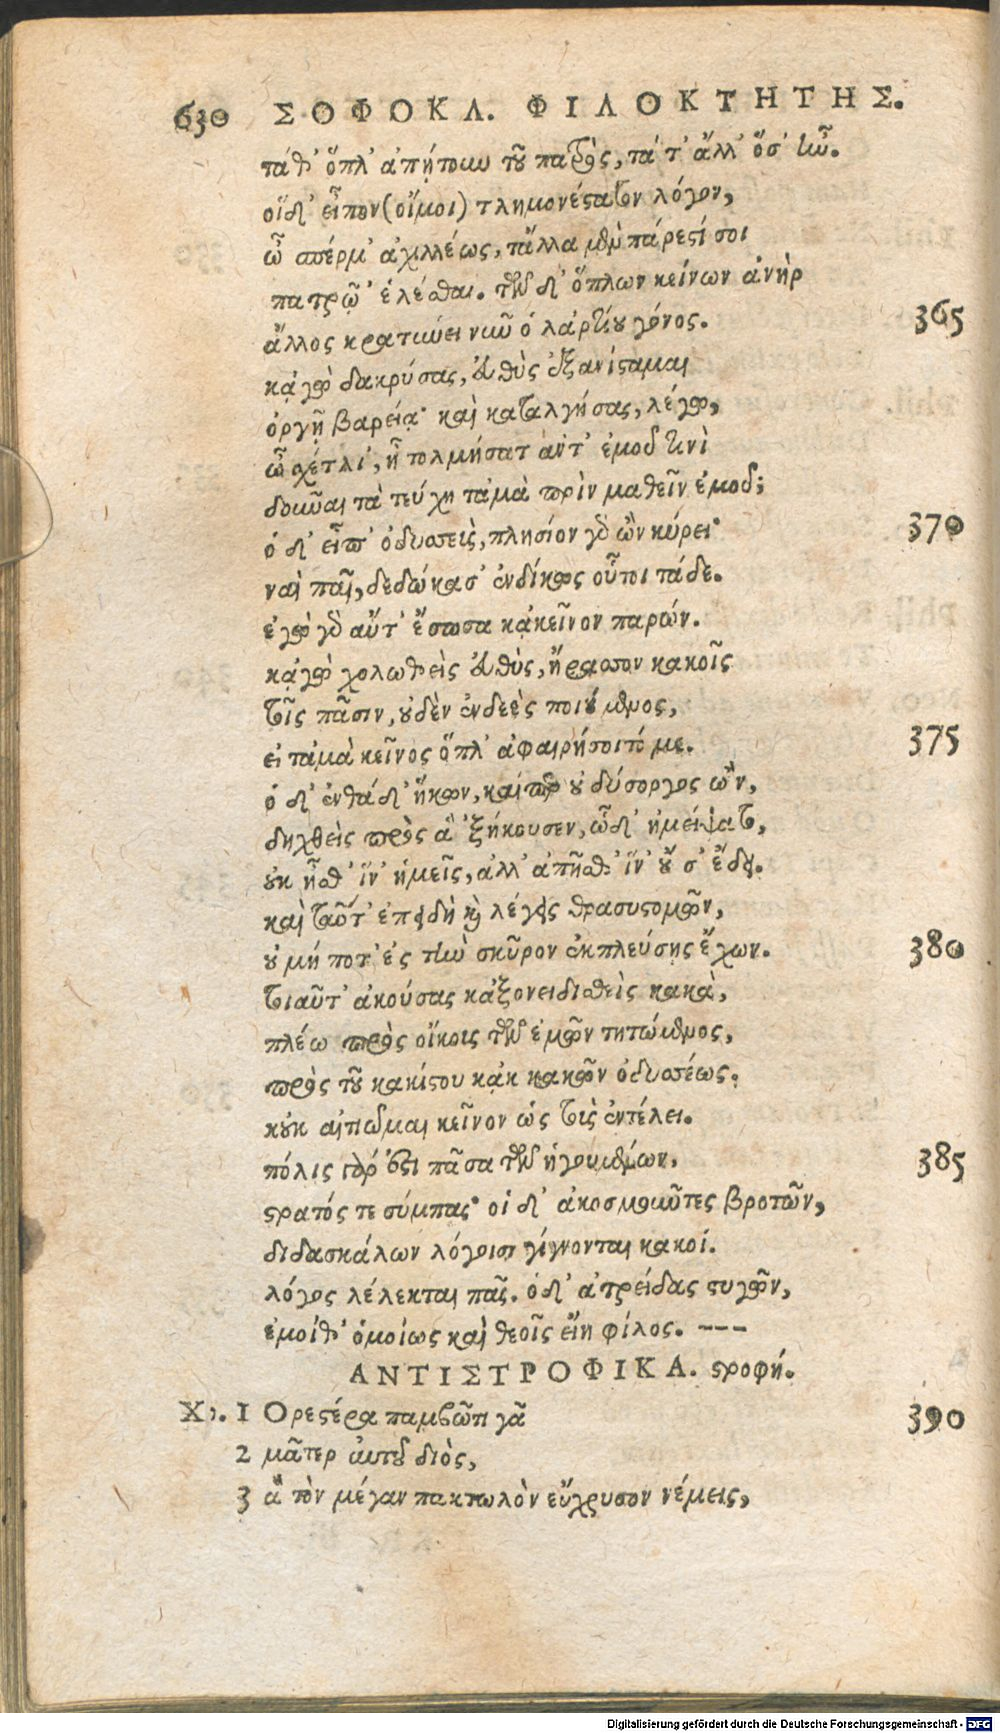 630 ΣΟΦΟΚΛ. ΦΙΛΟΚΤΗΤΗΣ.
τά θ' ὅπλ' ἀπῄτουν τοῦ πατρὸς, τά τ' ἄλλ' ὅσ' ἦν.
οἱ δ' εἶπον (οἴμοι) τλημονέστατον λόγον,
ὦ σπέρμ' ἀχιλλέως, τἄλλα μὲν πάρεστί σοι
πατρῷ' ἑλέσθαι. τῶν δ' ὅπλων κείνων ἀνὴρ
ἄλλος κρατύνει νῦν ὁ λαρτίου γόνος. 365
κᾀγὼ δακρύσας, εὐθὺς ἐξανίσταμαι
ὀργῇ βαρείᾳ· καὶ καταλγήσας, λέγω,
ὦ σχέτλι', ἦ τολμήσατ' ἀντ' ἐμοῦ τινὶ
δοῦναι τὰ τεύχη τἀμὰ πρὶν μαθεῖν ἐμοῦ;
ὁ δ' εἶπ' ὀδυσσεὺς, πλησίον γὰρ ὢν κύρει· 370
ναὶ παῖ, δεδώκασ' ἐνδίκως οὗτοι τάδε.
ἐγὼ γὰρ αὔτ' ἔσωσα κᾀκεῖνον παρών.
κᾀγὼ χολωθεὶς εὐθὺς, ἤρασσον κακοῖς
τοῖς πᾶσιν, οὐδὲν ἐνδεὲς ποιούμενος,
εἰ τἀμὰ κεῖνος ὅπλ' ἀφαιρήσοιτό με. 375
ὁ δ' ἐνθάδ' ἥκων, καίπερ οὐ δύσοργος ὢν,
δηχθεὶς πρὸς ἃ 'ξήκουσεν, ὧδ' ἠμείψατο,
οὐκ ἦσθ' ἵν' ἡμεῖς, ἀλλ' ἀπῆσθ' ἵν' οὔ σ' ἔδει.
καὶ ταῦτ' ἐπειδὴ καὶ λέγεις θρασυστομῶν,
οὐ μή ποτ' ἐς τὴν σκῦρον ἐκπλεύσῃς ἔχων. 380
τοιαῦτ' ἀκούσας κἀξονειδισθεὶς κακὰ,
πλέω πρὸς οἴκους τῶν ἐμῶν τητώμενος,
πρὸς τοῦ κακίστου κᾀκ κακῶν ὀδυσσέως.
κοὐκ αἰτιῶμαι κεῖνον ὡς τοὺς ἐν τέλει.
πόλις γάρ ἐστι πᾶσα τῶν ἡγουμένων, 385
στρατός τε σύμπας· οἱ δ' ἀκοσμοῦντες βροτῶν,
διδασκάλων λόγοισι γίγνονται κακοί.
λόγος λέλεκται πᾶς. ὁ δ' ἀτρείδας στυγῶν,
ἐμοί θ' ὁμοίως καὶ θεοῖς εἴη φίλος. ---
ΑΝΤΙΣΤΡΟΦΙΚΑ. στροφή.
Χο. 1 Ορεστέρα παμβῶτι γᾶ 390
2 μᾶτερ αὐτοῦ διὸς,
3 ἃ τὸν μέγαν πακτωλὸν εὔχρυσον νέμεις,
Digitalisierung gefördert durch die Deutsche Forschungsgemeinschaft - DFG